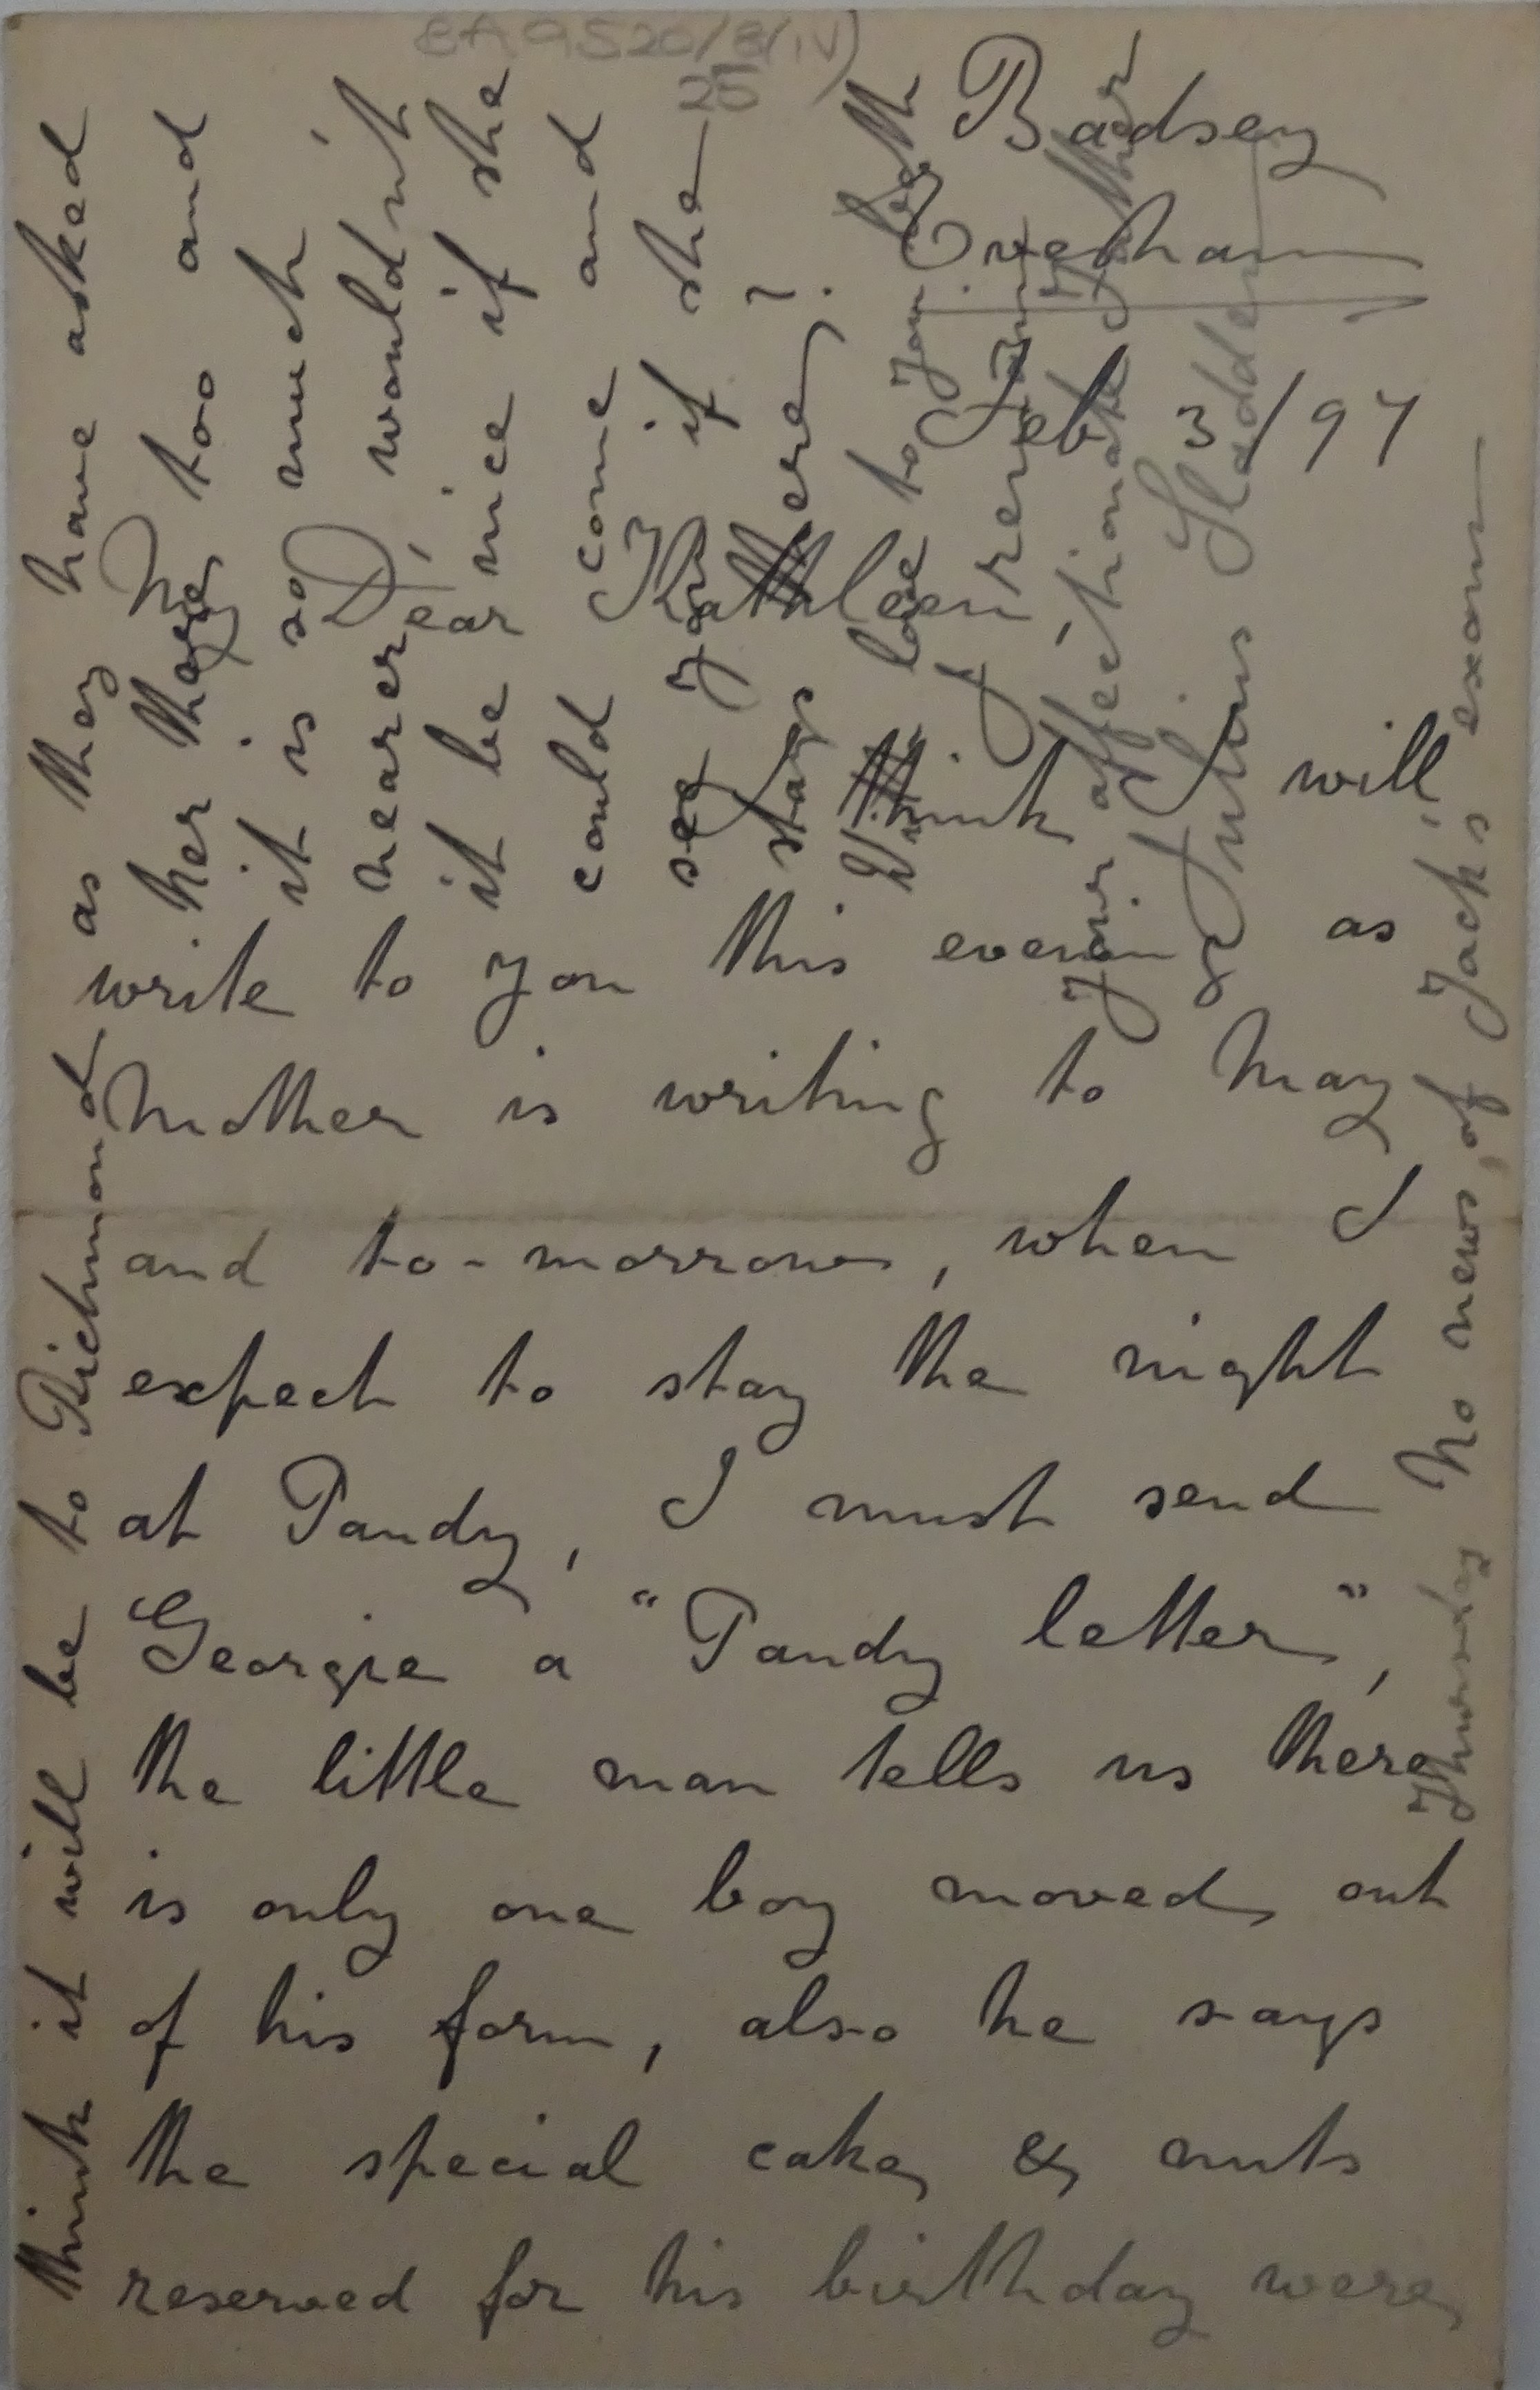 BA9520/8/iv)
25
Badsey
Evesham
Feb 3/97
My Dear Kathleen,
I think I will
write to you this evening as
Mother is writing to May
and to-morrow, when I
expect to stay the night
at Pandy, I must send
Georgie a "Pandy letter",
the little man tells us there
is only one boy moved out
of his form, also he says
the special cake & nuts
reserved for his birthday were
think it will be to Richmond as they have asked
her there too and
it is so much
nearer, wouldn't
it be nice if she
could come and
see you if she
stays there?
With love to you both
I remain
Your affectionate Father
Julius Sladden
Thursday No news of Jack's exam